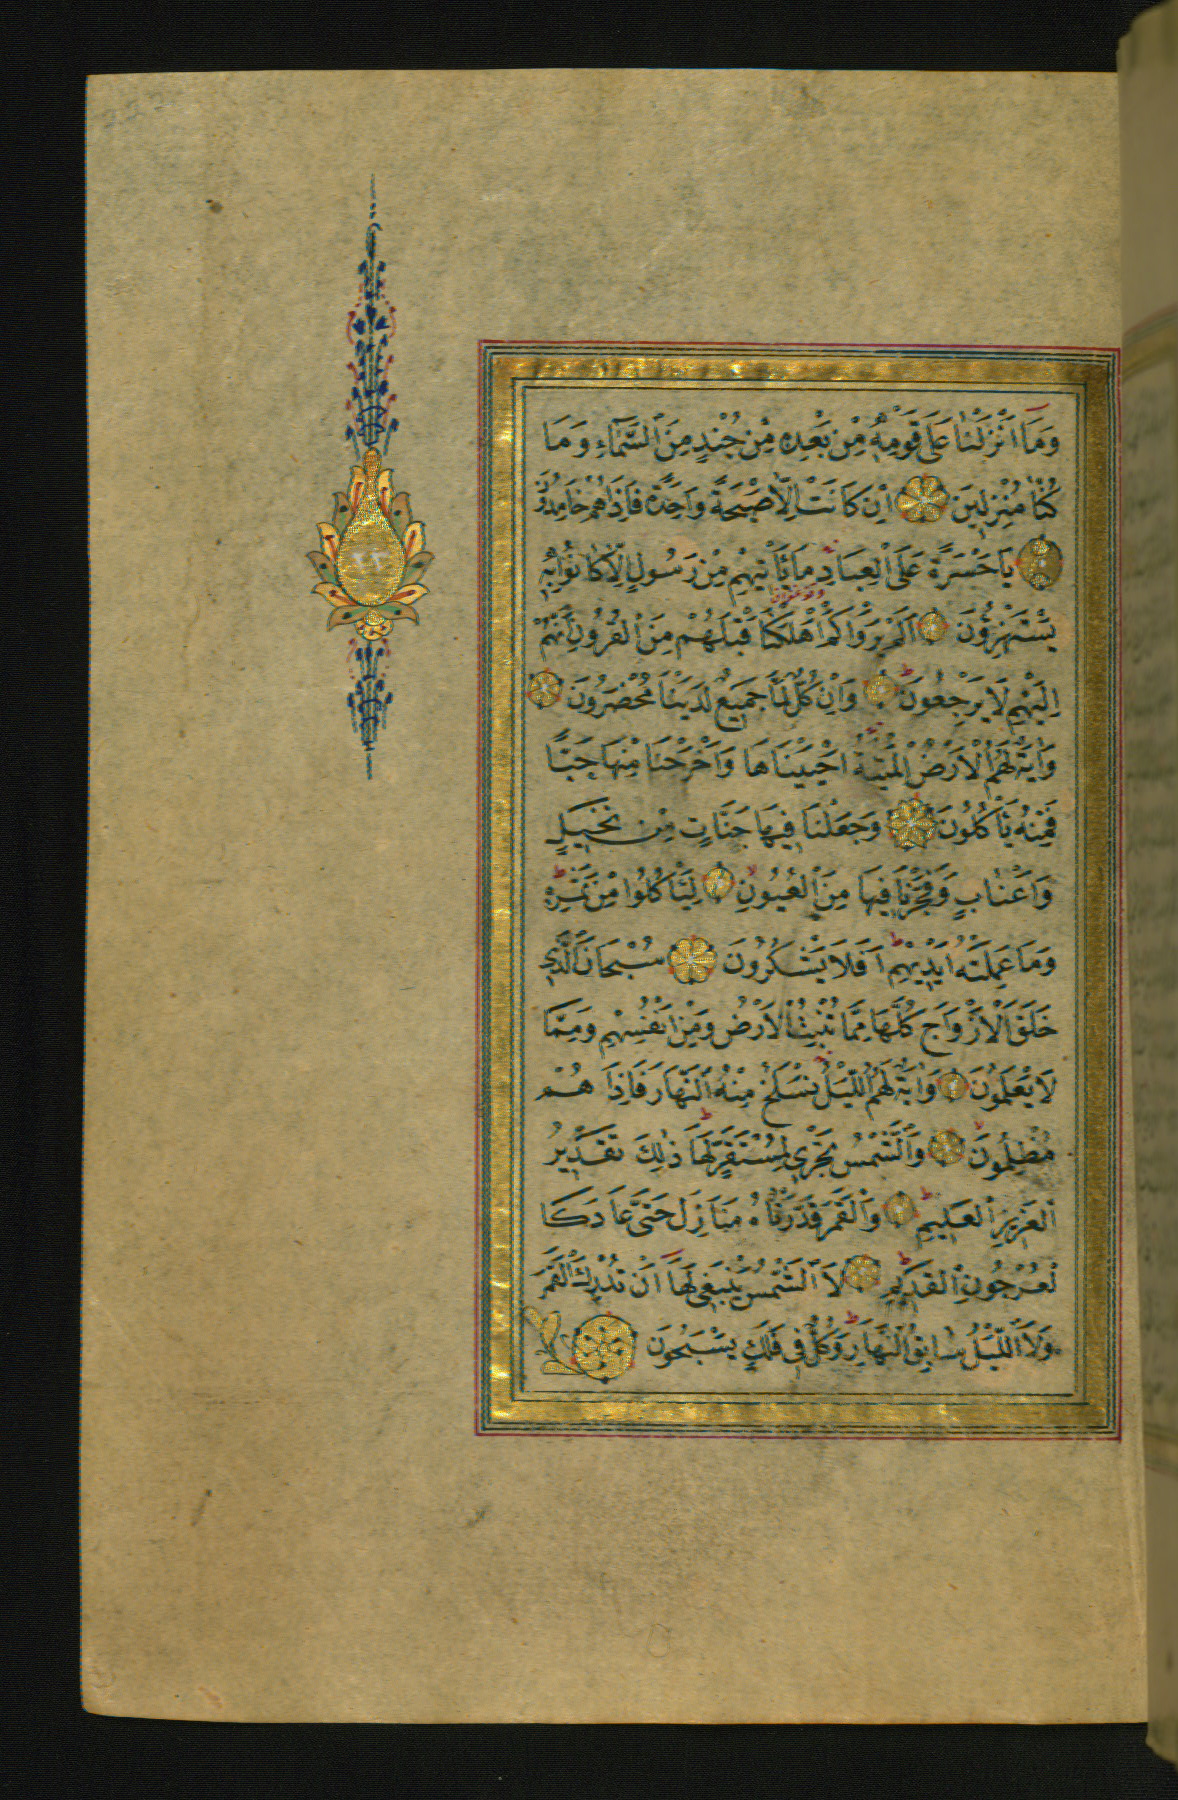 وَمَا اَنْزَلْنَا عَلٰى قَوْمِهٖ مِنْ بَعْدِهٖ مِنْ جُنْدٍ مِنَ السَّمَٓاءِ وَمَا
كُنَّا مُنْزِلِينَ اِنْ كَانَتْ اِلَّا صَيْحَةً وَاحِدَةً فَاِذَا هُمْ خَامِدُونَ
يَا حَسْرَةً عَلَى الْعِبَادِ مَا يَأْتِيهِمْ مِنْ رَسُولٍ اِلَّا كَانُوا بِهٖ
يَسْتَهْزِؤُنَ اَلَمْ يَرَوْا كَمْ اَهْلَكْنَا قَبْلَهُمْ مِنَ الْقُرُونِ اَنَّهُمْ
اِلَيْهِمْ لَا يَرْجِعُونَ وَاِنْ كُلٌّ لَمَّا جَمِيعٌ لَدَيْنَا مُحْضَرُونَ
وَاٰيَةٌ لَهُمُ الْاَرْضُ الْمَيْتَةُ اَحْيَيْنَاهَا وَاَخْرَجْنَا مِنْهَا حَبًّا
فَمِنْهُ يَأْكُلُونَ وَجَعَلْنَا فِيهَا جَنَّاتٍ مِنْ نَخِيلٍ
وَاَعْنَابٍ وَفَجَّرْنَا فِيهَا مِنَ الْعُيُونِ لِيَأْكُلُوا مِنْ ثَمَرِهٖ
وَمَا عَمِلَتْهُ اَيْدِيهِمْ اَفَلَا يَشْكُرُونَ سُبْحَانَ الَّذِي
خَلَقَ الْاَزْوَاجَ كُلَّهَا مِمَّا تُنْبِتُ الْاَرْضُ وَمِنْ اَنْفُسِهِمْ وَمِمَّا
لَا يَعْلَمُونَ وَاٰيَةٌ لَهُمُ اللَّيْلُ نَسْلَخُ مِنْهُ النَّهَارَ فَاِذَا هُمْ
مُظْلِمُونَ وَالشَّمْسُ تَجْرِي لِمُسْتَقَرٍّ لَهَا ذٰلِكَ تَقْدِيرُ
الْعَزِيزِ الْعَلِيمِ وَالْقَمَرَ قَدَّرْنَاهُ مَنَازِلَ حَتّٰى عَادَ كَا
لْعُرْجُونِ الْقَدِيمِ لَا الشَّمْسُ يَنْبَغِي لَهَا اَنْ تُدْرِكَ الْقَمَرَ
وَلَا اللَّيْلُ سَابِقُ النَّهَارِ وَكُلٌّ فِي فَلَكٍ يَسْبَحُونَ